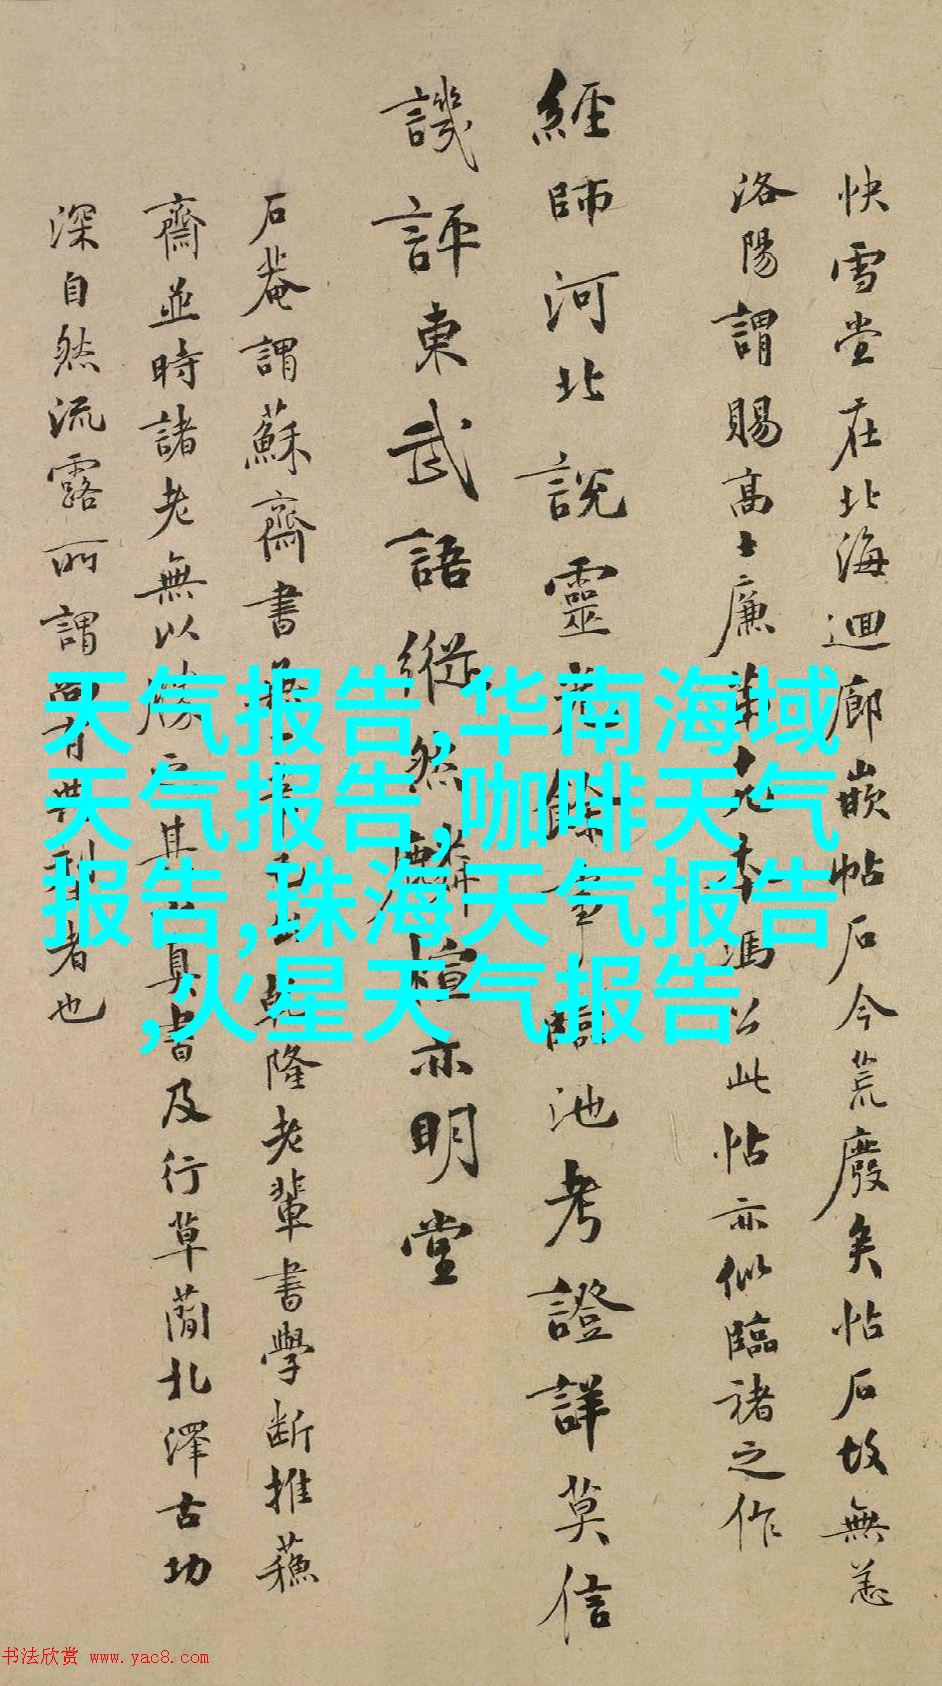 快雪堂在北海迴廊嵌帖石今荒廢矣帖石故無恙
洛陽謂賜高士廉
馮公此帖亦似臨褚之作
經師河北說靈
餘事臨池考證詳莫信
譏評東武語縱然
亦明堂
石菴謂蘇齋書
乾隆老輩書學斷推蘓
齋並時諸老無以勝
其真書及行草蘭北澤古功
深自然流露所謂
者也
天气报告,华南海域
天气报告,咖啡天气
报告,珠海天气报告
,火星天气报告
书法欣赏 www.yac8.com